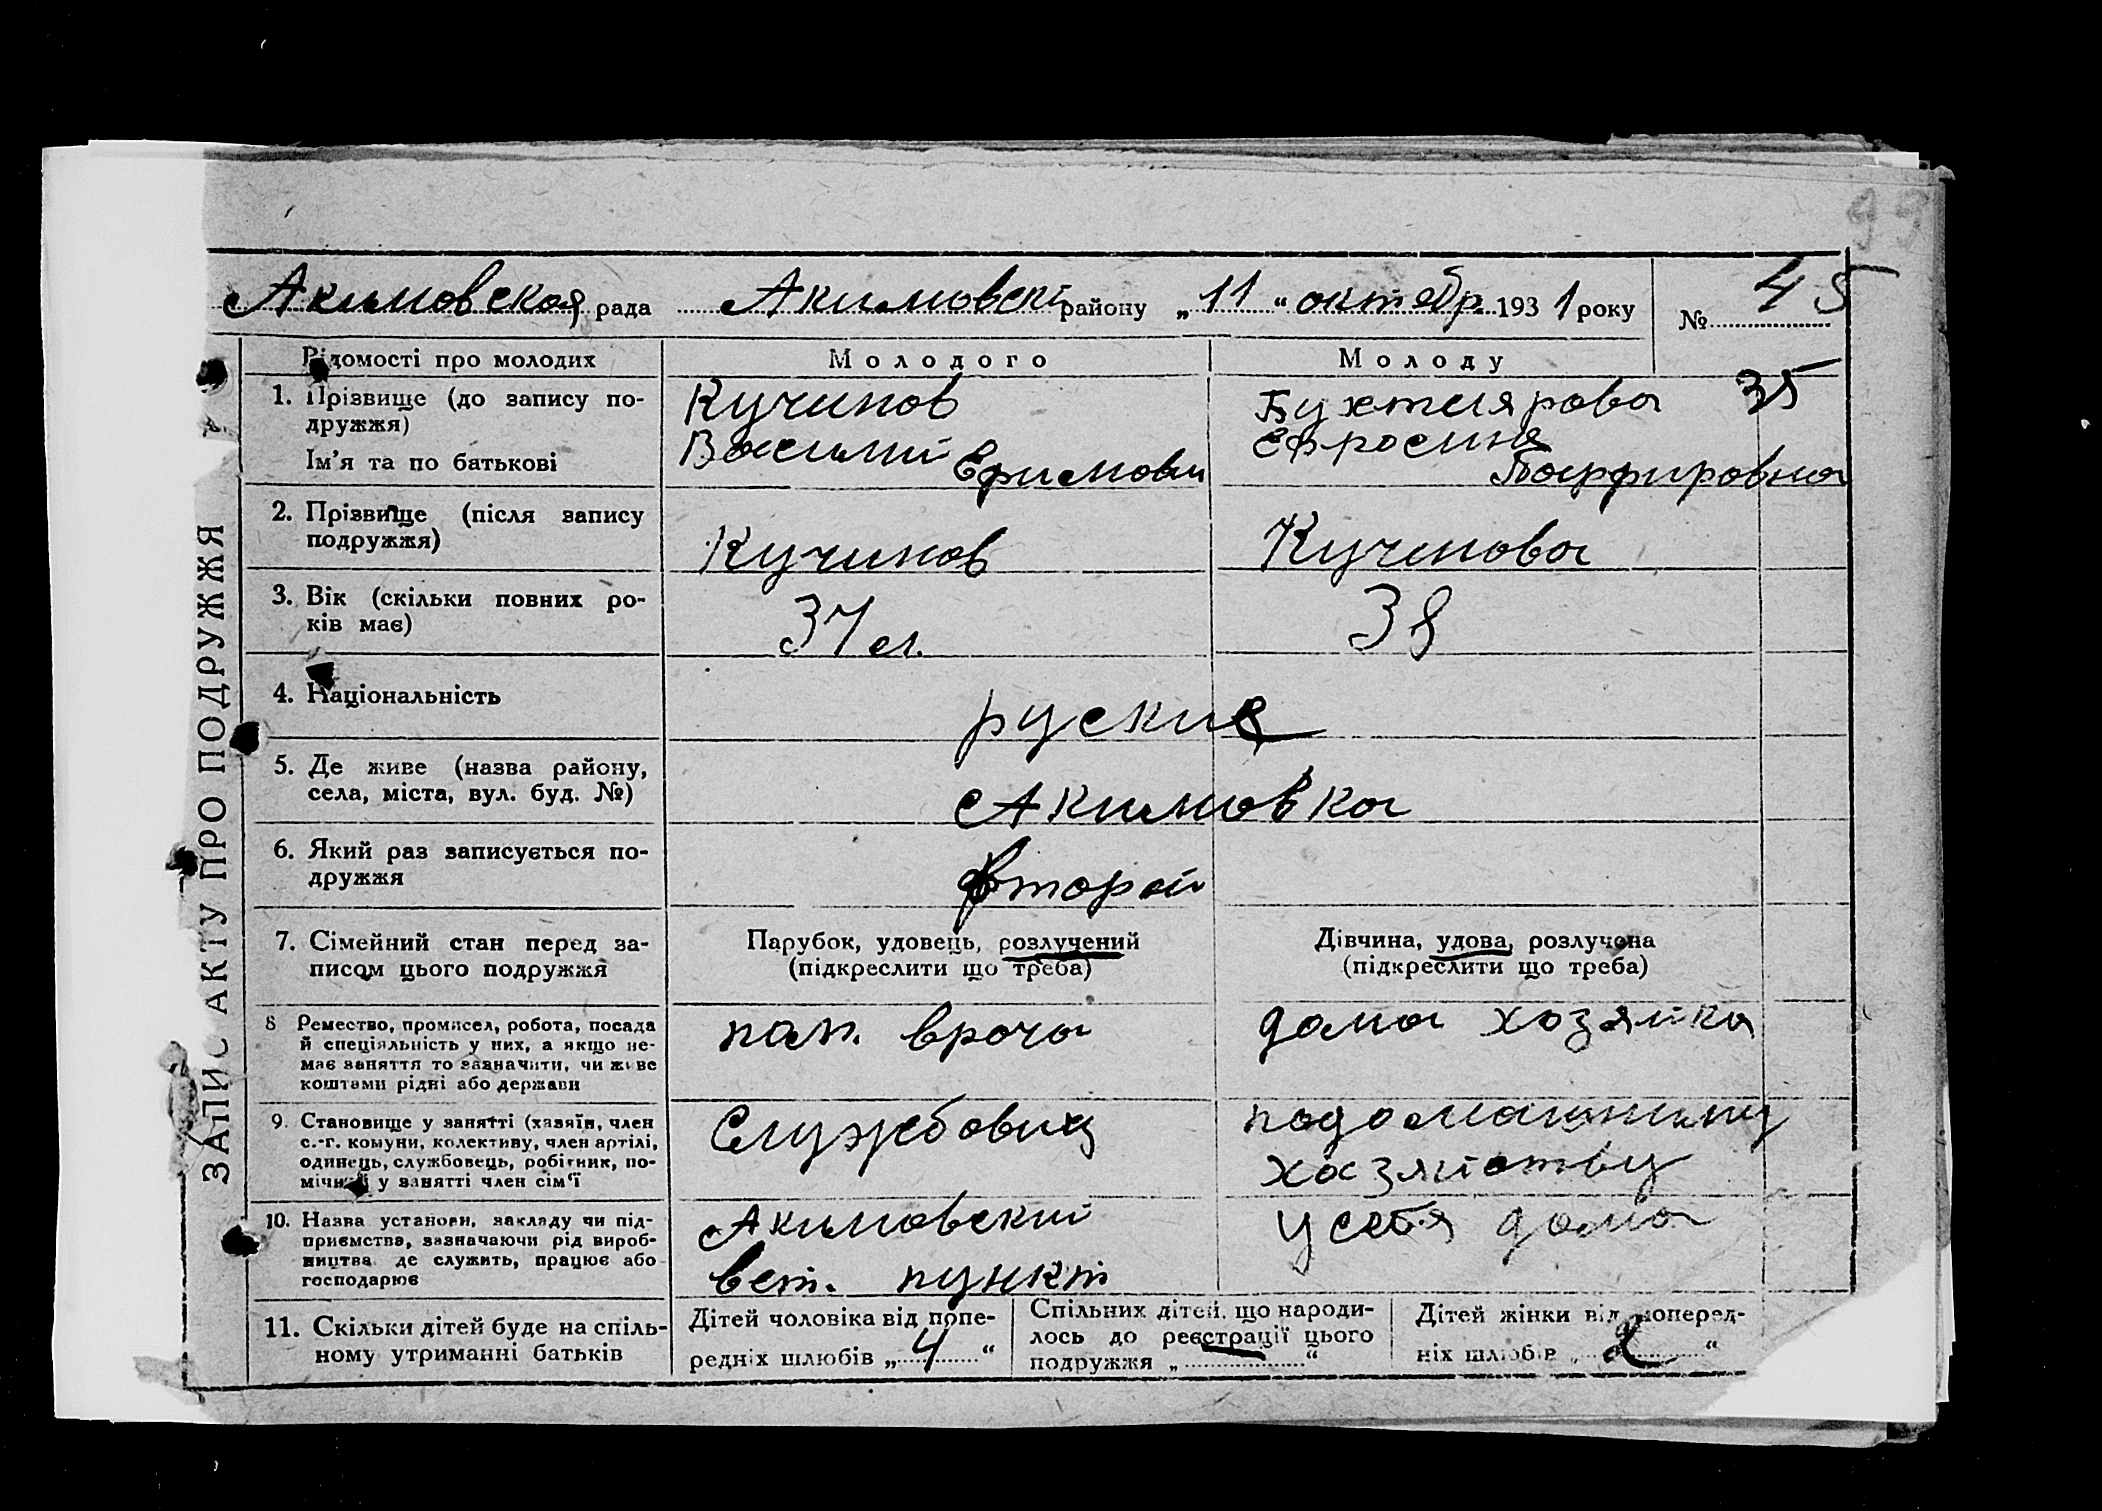 99
Акимовская рада Акимовскі району „11“ октябр. 1931 року № 45
ЗАПИС АКТУ ПРО ПОДРУЖЖЯ
Відомості про молодих Молодого Молоду
1. Прізвище (до запису по-
дружжя)
Ім'я та по батькові
Кучинов
Василий Ефимович
Бухтиярова 35
Ефросиня
Парфировна
2. Прізвище (після запису
подружжя)
Кучинов Кучинова
3. Вік (скільки повних ро-
ків має)
37 л. 38
4. Національність
руские
5. Де живе (назва району,
села, міста, вул. буд. №)
Акимовка
6. Який раз записується по-
дружжя
второй
7. Сімейний стан перед за-
писом цього подружжя
Парубок, удовець, розлучений
(підкреслити що треба)
Дівчина, удова, розлучена
(підкреслити що треба)
8 Ремество, промисел, робота, посада
й спеціяльність у них, а якщо не-
має заняття то зазначити, чи живе
коштами рідні або держави
пом. врача
дома хозяйка
9. Становище у занятті (хазяїн, член
с.-г. комуни, колективу, член артілі,
одинець, службовець, робітник, по-
мічний у занятті член сім'ї
Службовиц
подомашниму
хазяйству
10. Назва установи, закладу чи під-
приємства, зазначаючи рід вироб-
ництва де служить, працює або
господарює
Акимовский
вет. пункт
у себя дома
11. Скільки дітей буде на спіль-
ному утриманні батьків
Дітей чоловіка від попе-
редніх шлюбів „4“
Спільних дітей, що народи-
лось до реєстрації цього
подружжя „ “
Дітей жінки від поперед-
ніх шлюбів „2“